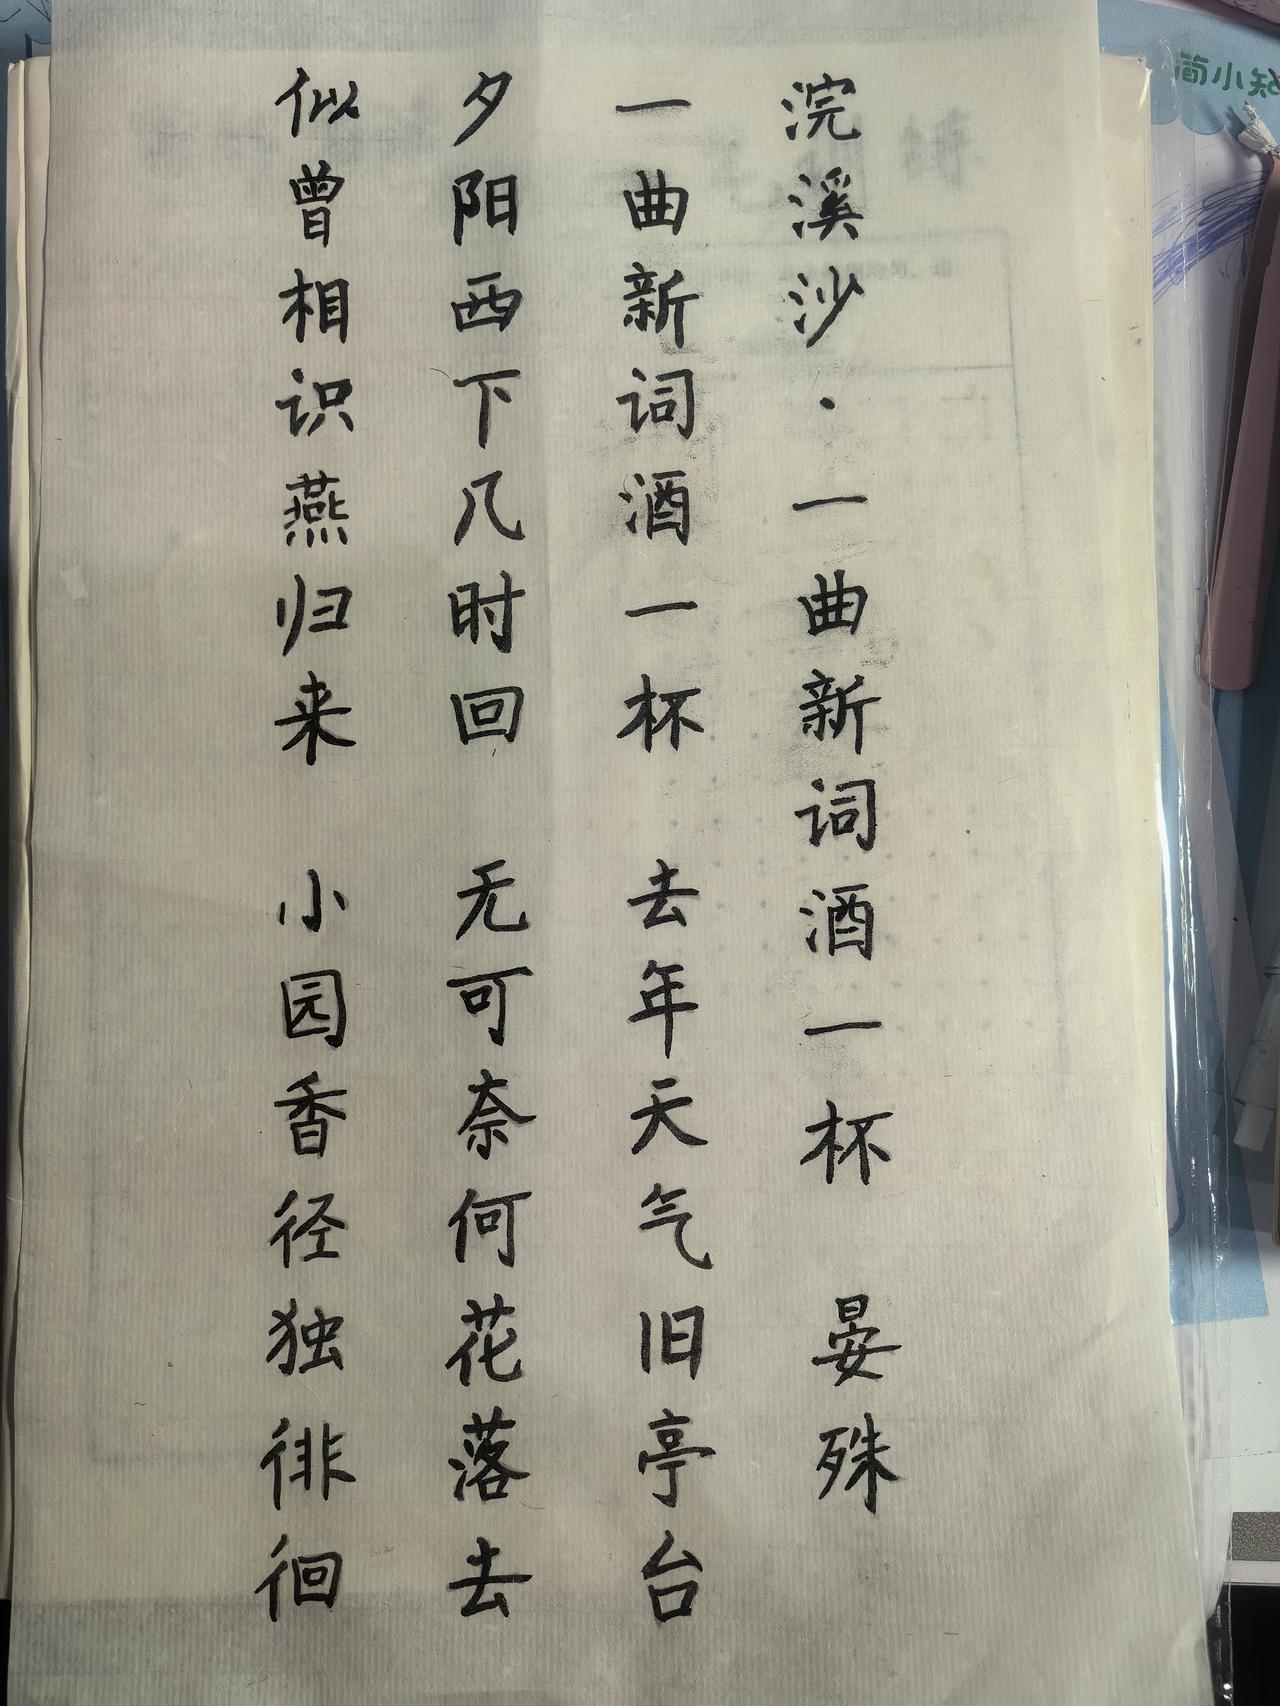 浣溪沙·一曲新词酒一杯 晏殊
一曲新词酒一杯 去年天气旧亭台
夕阳西下几时回 无可奈何花落去
似曾相识燕归来 小园香径独徘徊
简小知